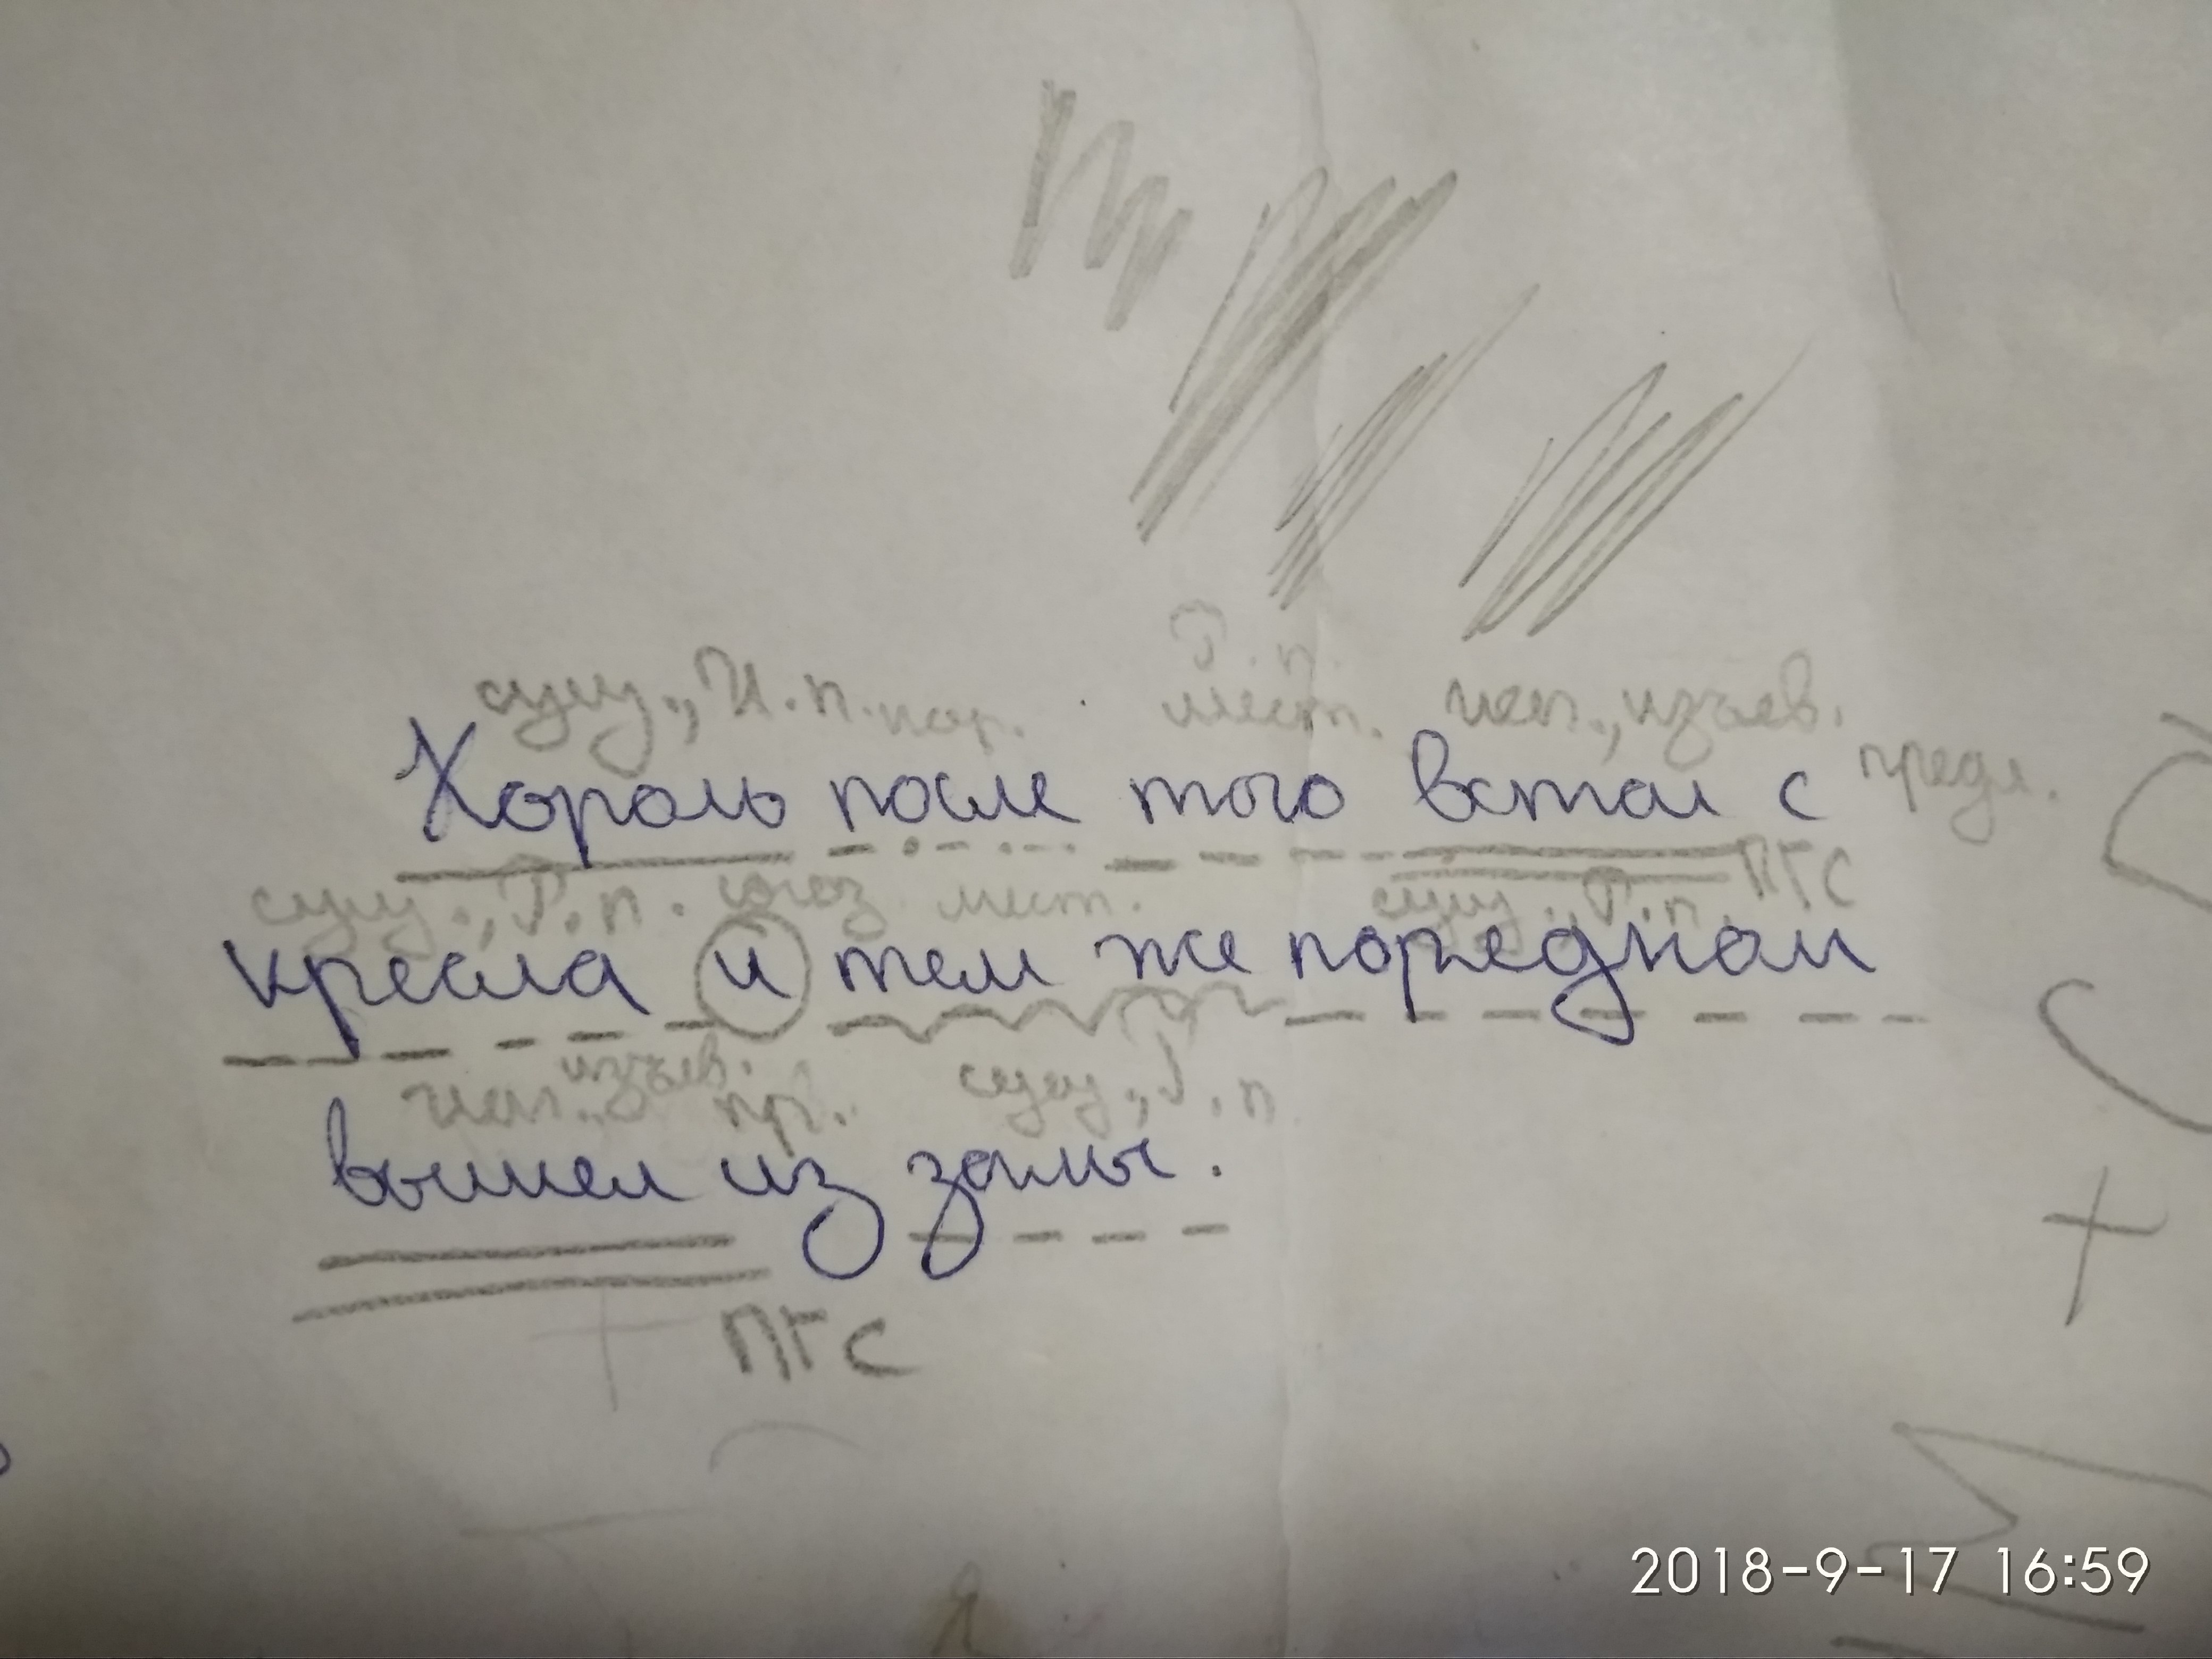 Р.п.
сущ., И.п. нар. мест. гл., изъяв.
Король после того встал с предл.
сущ., Р.п. союз мест. сущ., Р.п. ПГС
кресла и тем же порядком
изъяв.
гл., пр. сущ., Р.п
вышел из залы.
ПГС
2018-9-17 16:59